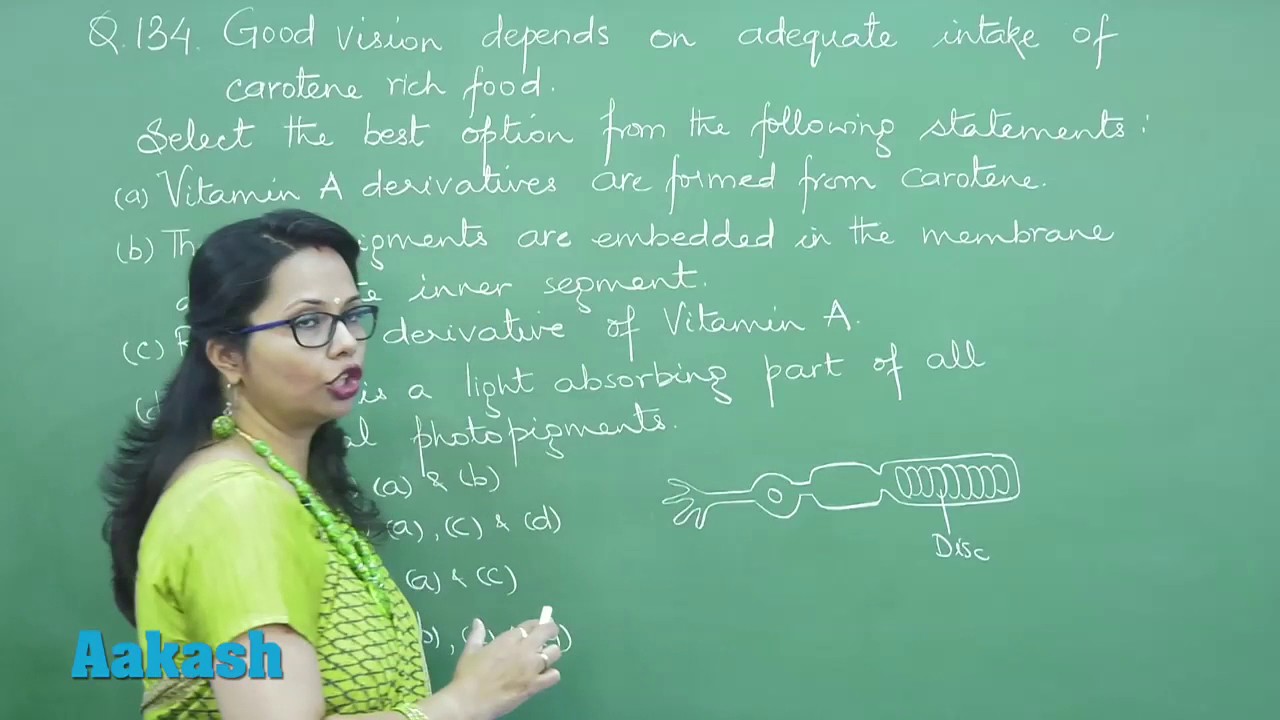 Q.134. Good vision depends on adequate intake of
carotene rich food.
Select the best option from the following statements:
(a) Vitamin A derivatives are formed from carotene.
(b) are embedded in the membrane
inner segment.
(c) derivative of Vitamin A.
is a light absorbing part of all
photopigments.
(a) & (b)
(a), (c) & (d)
(a) & (c)
Disc
Aakash